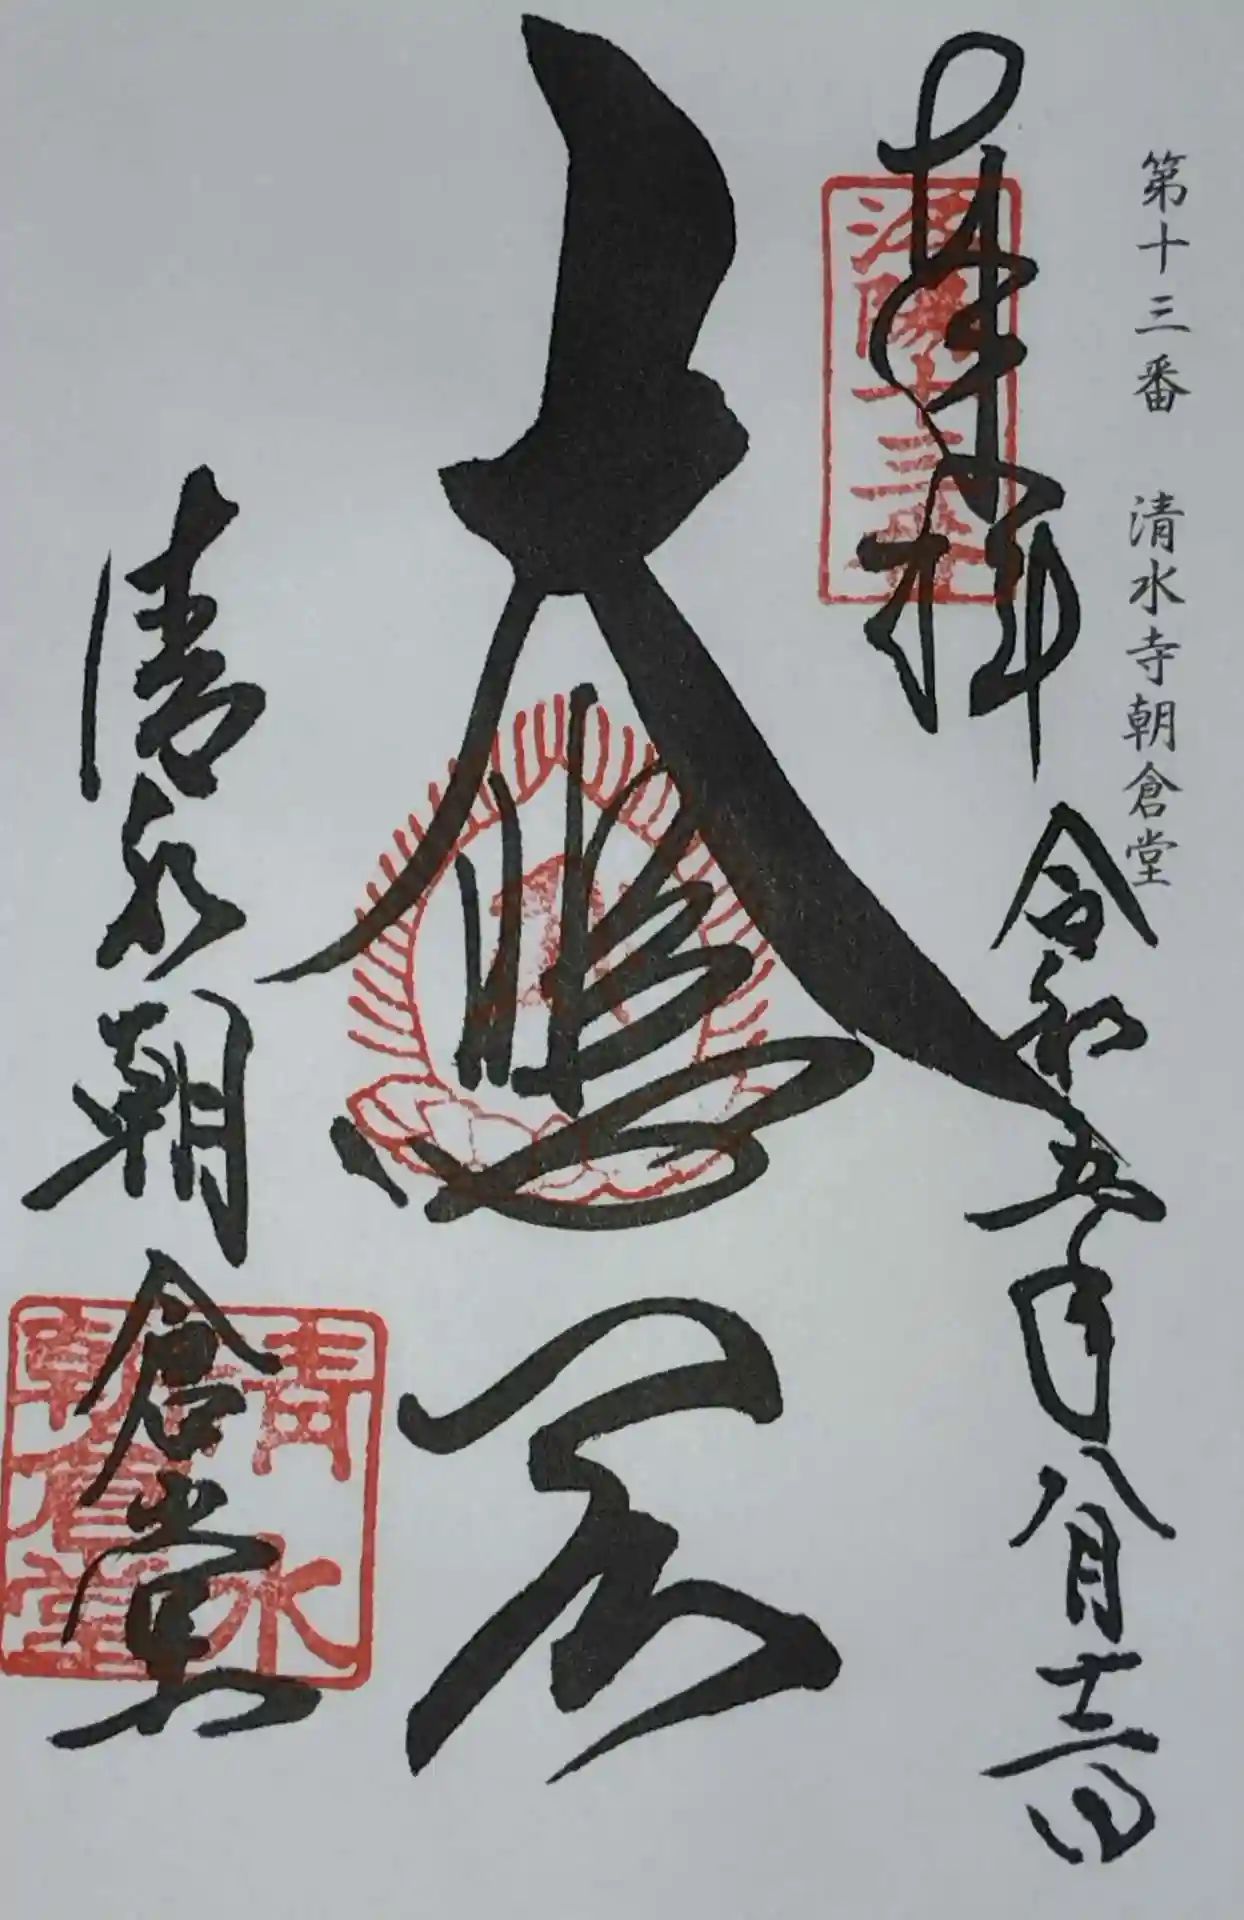 第十三番 清水寺朝倉堂
奉拝
洛陽十三番
令和五年八月十三日
大悲閣
清水朝倉堂
清水
朝倉堂